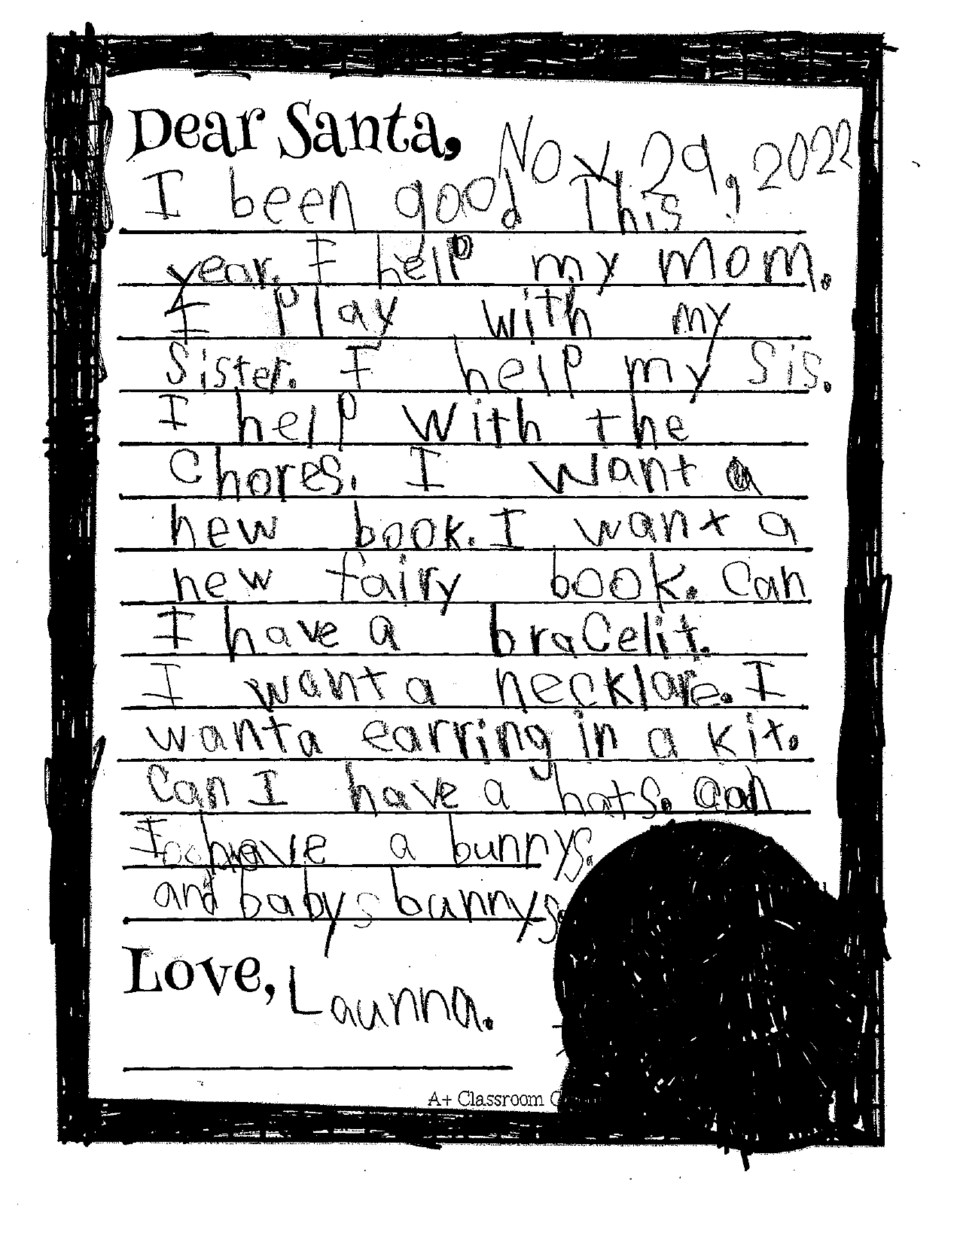 Dear Santa,
Nov. 29, 2022
I been good This
year. I help my mom.
I Play with my
Sister. I help my Sis.
I help With the
Chores. I Want a
new book. I want a
new fairy book. Can
I have a braCelit.
I want a necklare. I
wanta earring in a kit.
Can I have a hats. Can
I have a bunnys.
and babys bunnys.
Love, Launna.
A+ Classroom